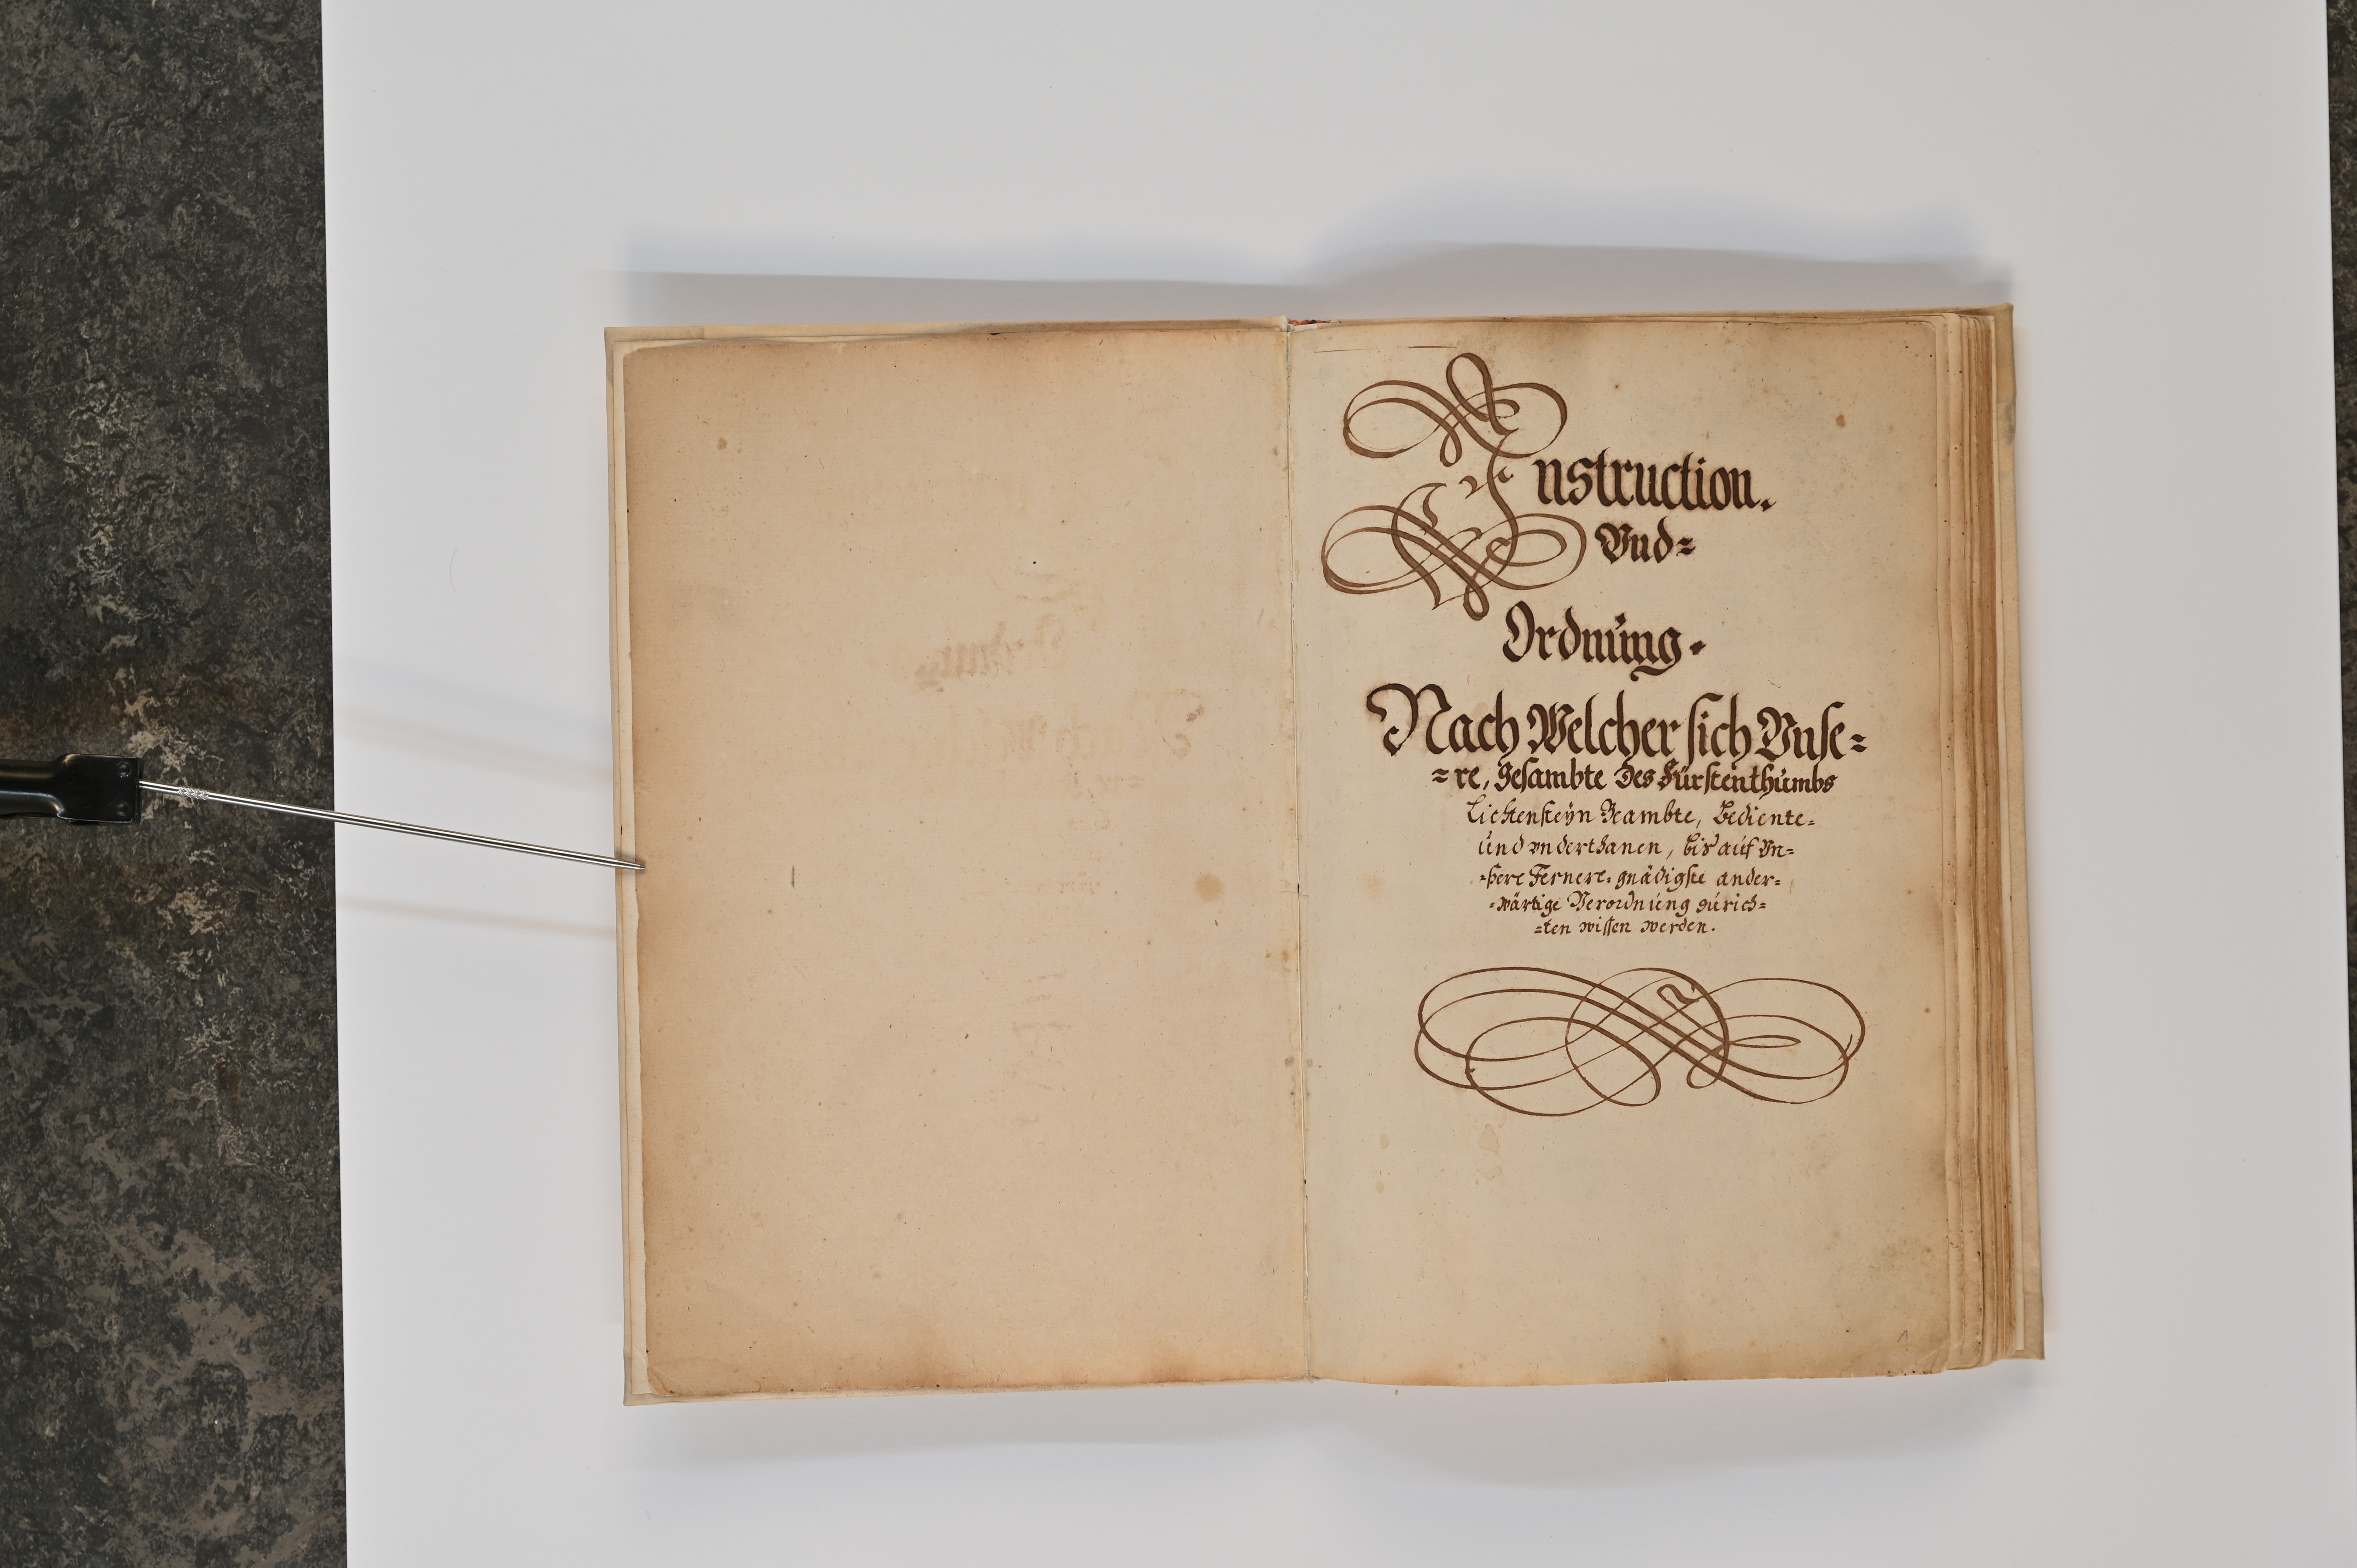 Instruction.
Vnd=
Ordnung.
Nach Welcher sich Vnse=
=re, gesambte des Fürstenthumbs
Liechtensteyn Beambte, Bediente=
und vnderthanen, bis auf Vn=
=ßere Fernere gnädigste ander=
=wärtige Verordnung zurich=
=ten wissen werden.